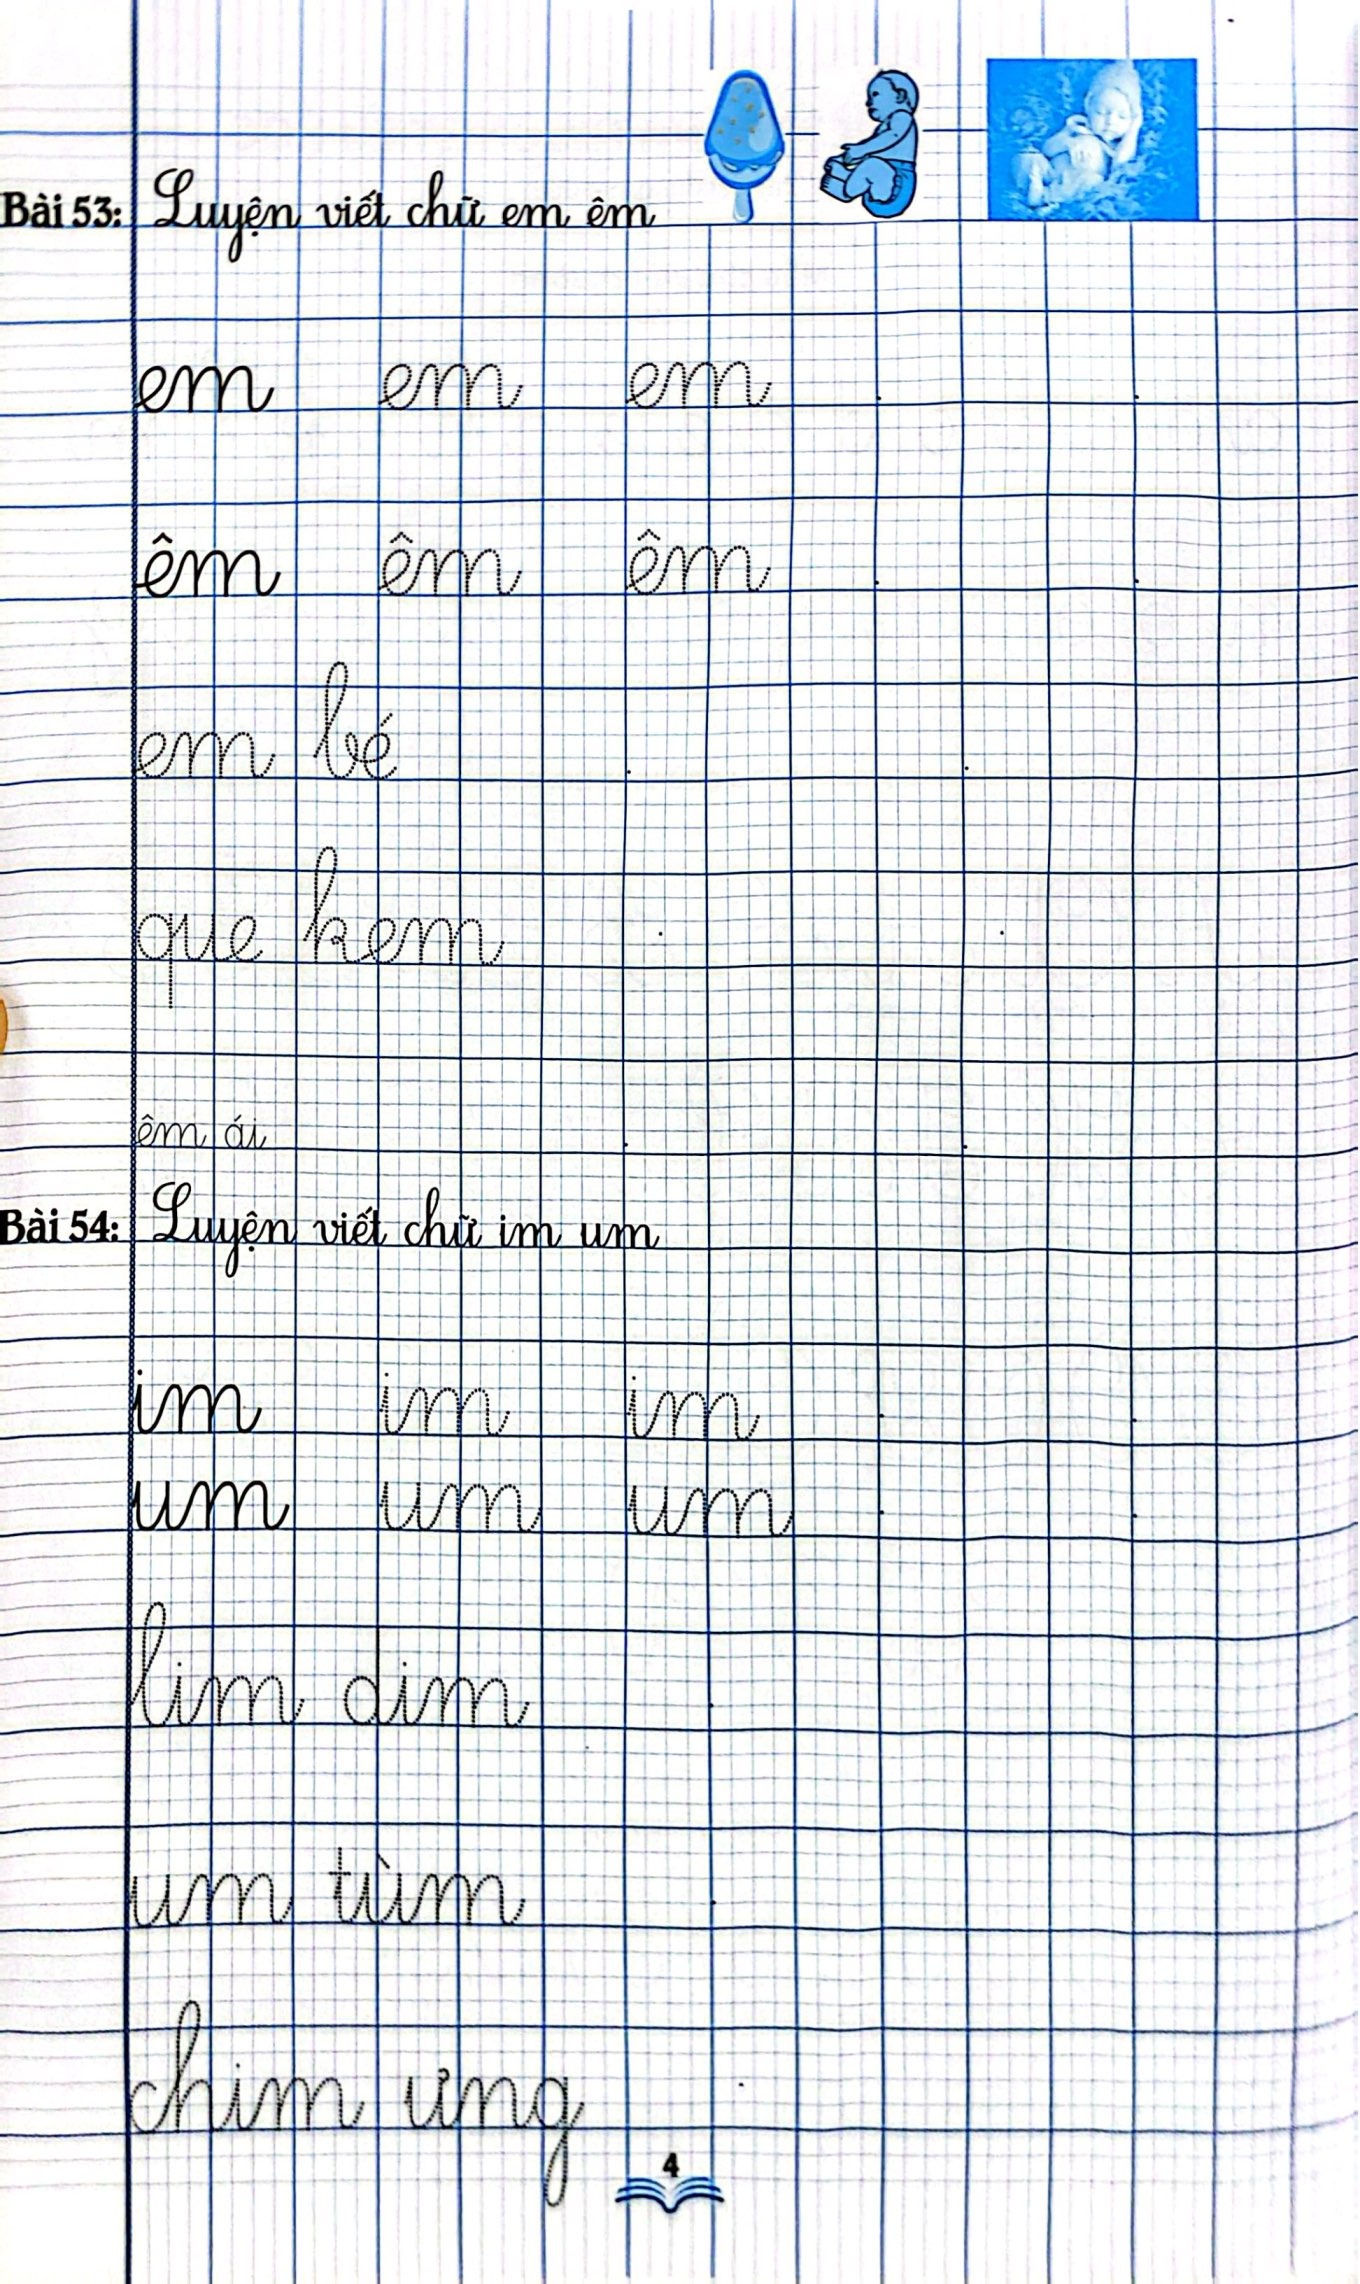 Bài 53: Luyện viết chữ em êm
em em em
êm êm êm
em bé
que kem
êm ái
Bài 54: Luyện viết chữ im um
im im im
um um um
lim dim
um tùm
chim ưng
4